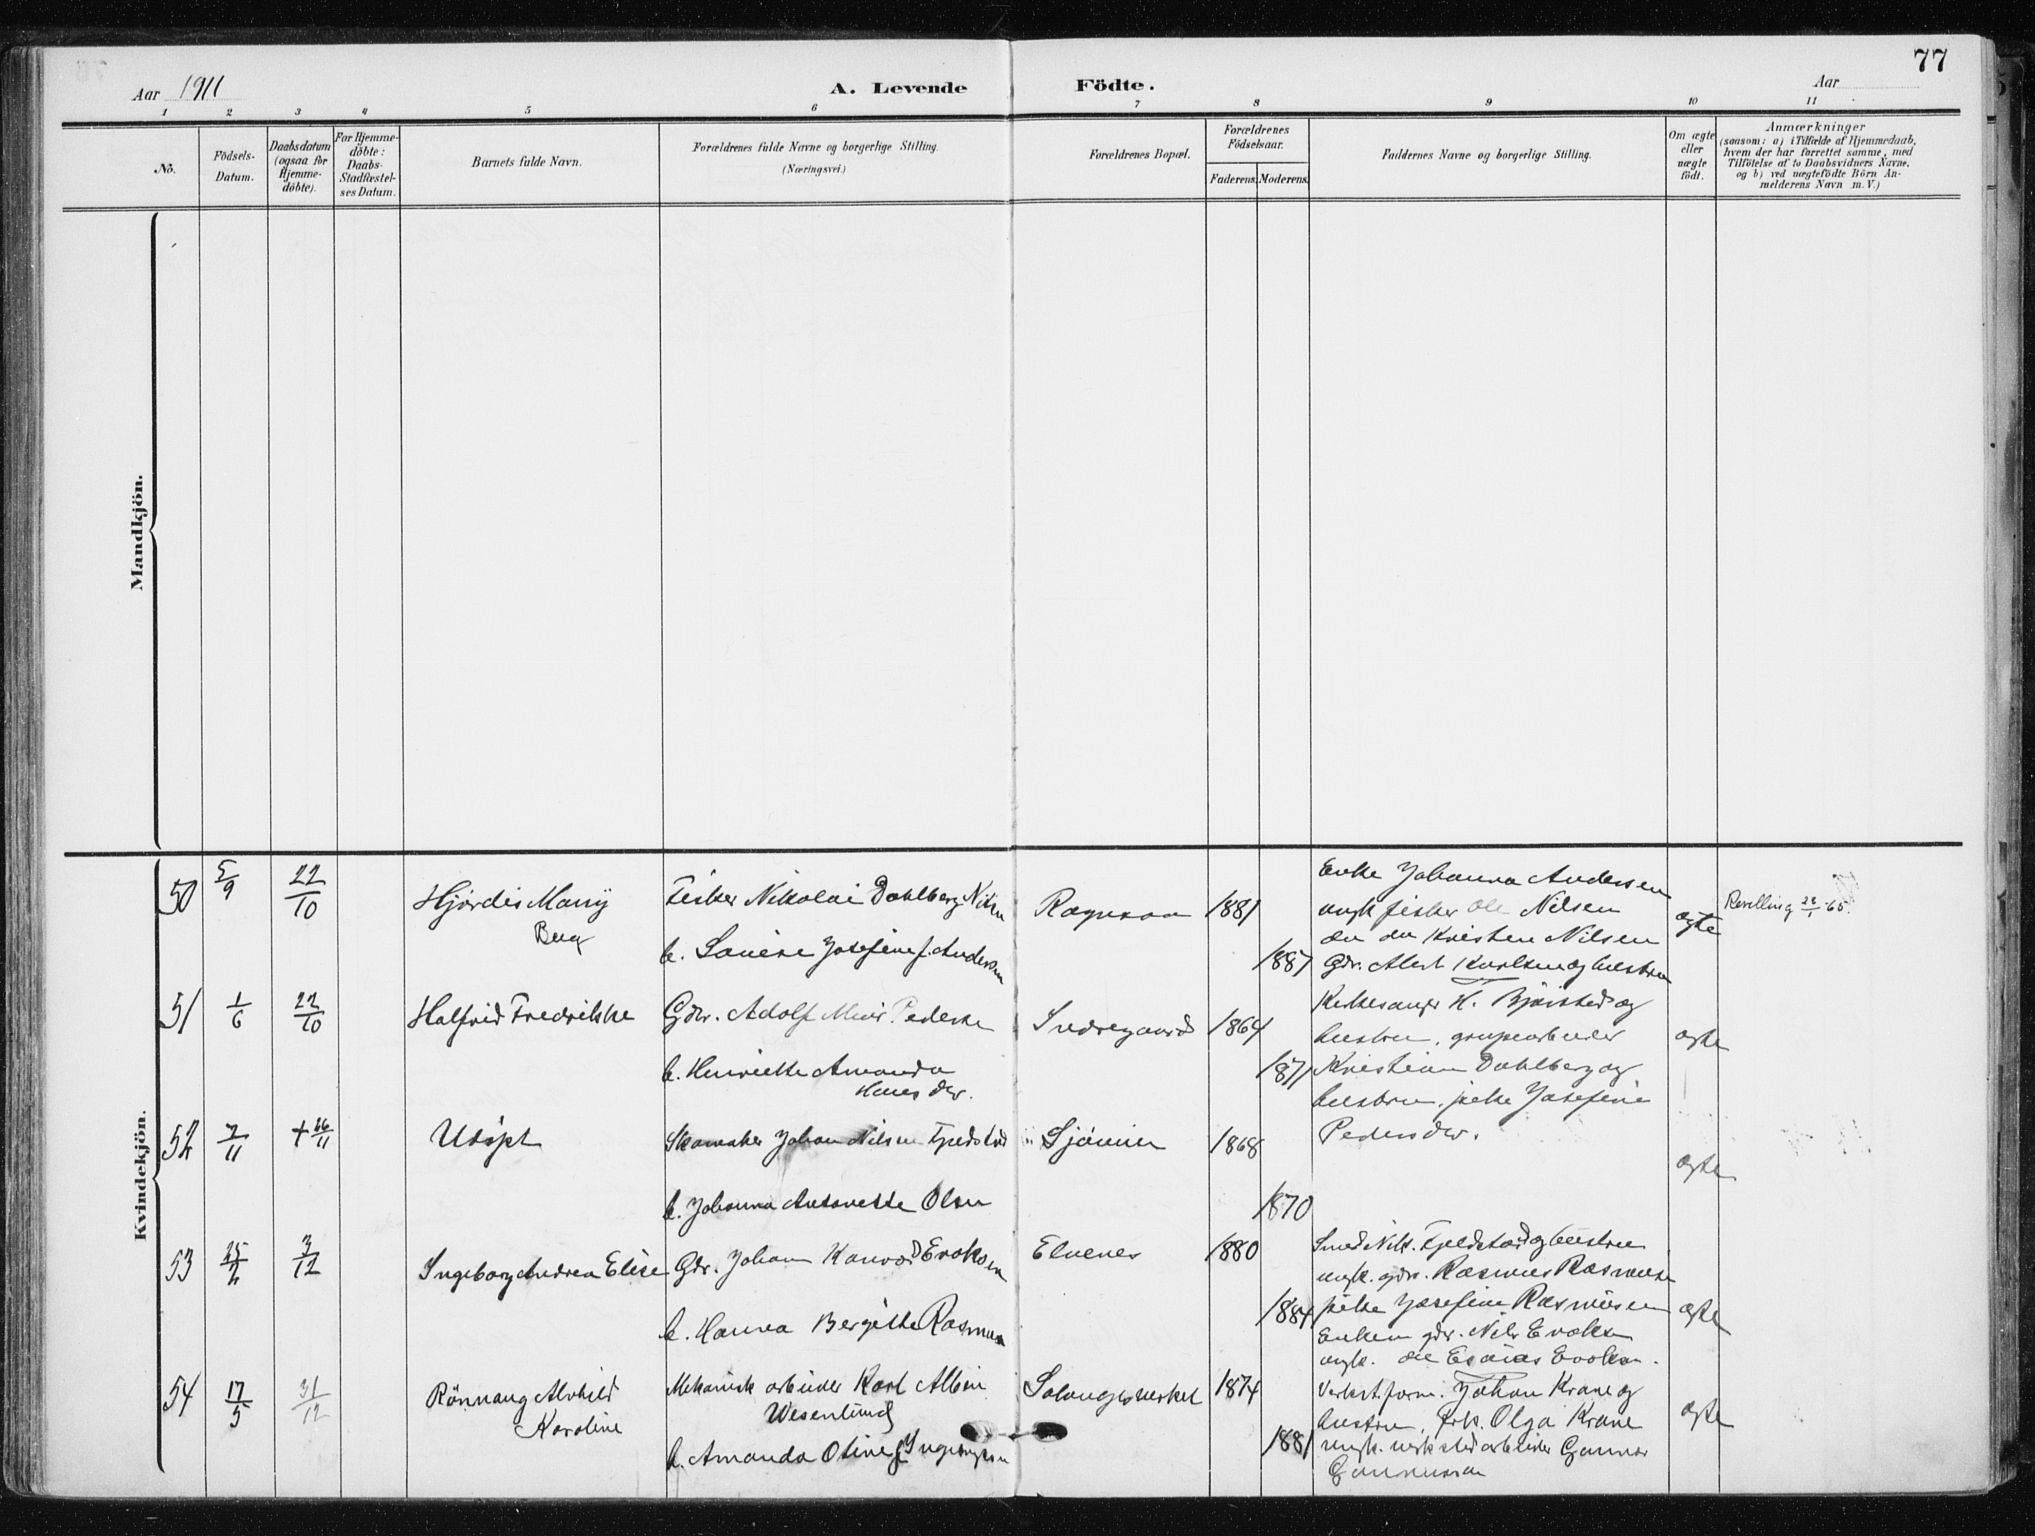 77
Aar 1911
A. Levende Födte.
Aar
1 2 3 4 5 6 7 8 9 10 11
No.
Födsels-
Datum.
Daabsdatum
(ogsaa for
Hjemme-
döbte).
For Hjemme-
döbte:
Daabs-
Stadfæstel-
ses Datum.
Barnets fulde Navn.
Forældrenes fulde Navne og borgerlige Stilling.
(Næringsvei.)
Forældrenes Bopæl.
Forældrenes
Födselsaar.
Faderens. Moderens.
Faddernes Navne og borgerlige Stilling.
Om ægte
eller
uægte
födt.
Anmærkninger
(saasom: a) i Tilfælde af Hjemmedaab,
hvem der har forrettet samme, med
Tilföielse af to Daabsvidners Navne,
og b) ved uægtefödte Börn An-
melderens Navn m.V.)
Mandkjön.
Kvindekjön.
50 5/9 22/10
Hjördis Mary
Fisker Nikolai Dahlberg Nilsen
h. Josefine f. Andersen
1881
1887
Enke Johanna Andersen
ungk fisker Ole Nilsen
Kristen Nilsen
Gdr. Karlsen og hustru
ægte
51 1/6 22/10
Halfrid Fredrikke
Gdbr. Adolf Pedersen
h. Henriette Amanda
Hansdtr.
1864
1871
Kirkesanger H. og
hustru, grubearbeider
Kristian Dahlberg og
hustru, pike Josefine
Pedersdtr.
ægte
52 7/11 + 26/11
Udöpt
Skomaker Johan Nilsen Fjeldstad
h. Johanna Antonette Olsen
1868
1870
ægte
53 3/12
Ingeborg Andrea Elise
Gdr. Johan Evoksen
h. Hanna Bergitte
Elvenes
1880
1884
Smed Nik. Fjeldstad og hustru
ungk. gdr. Rasmus Rasmussen
pike Josefine Rasmussen
Enkem. gdr. Nils Evoksen
ungk. Esaias Evoksen.
ægte
54 17/5 31/12
Rönnaug Alvhild
Karoline
Mekanisk arbeider Karl Albin
Wesenlund
h. Amanda Otine f. Ingebrigtsen
Salangsverket
1874
1881
Verkst.form. Johan Krane og
hustru, frk. Olga Krane
ungk. verkstedarbeider Gunnar
ægte